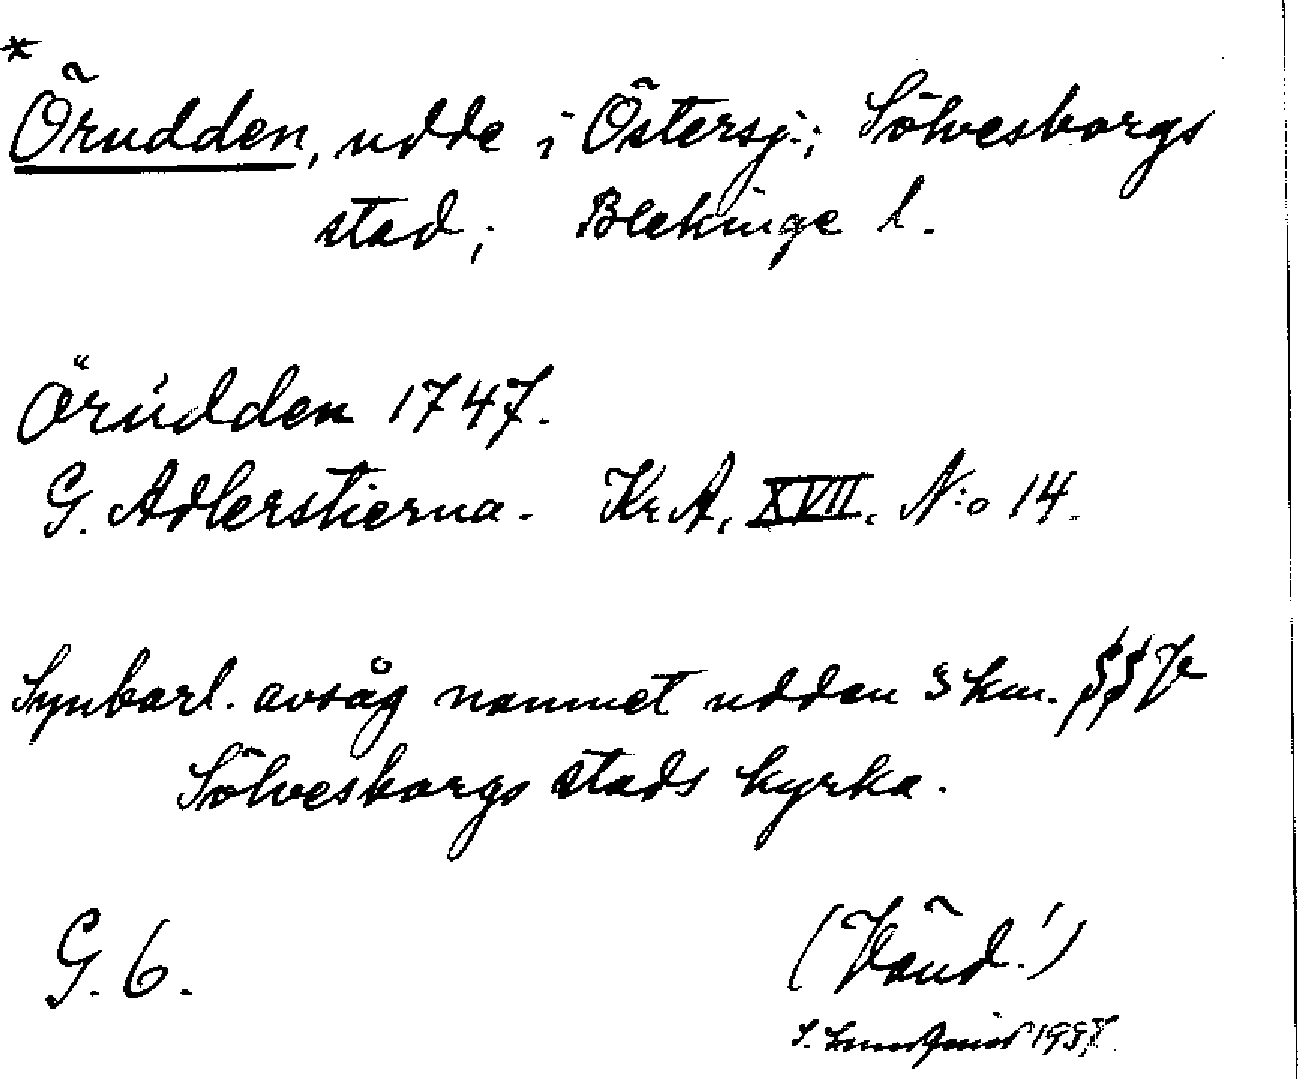 *
Örudden, udde i Östersj.; Sölvesborgs
stad; Blekinge l.
Örudden 1747.
G. Adlerstierna. Kr. A, XVII. N:o 14.
Synbarl. avsåg namnet udden 3 km. SSV
Sölvesborgs stads kyrka.
G. 6.
(Vänd!)
S. 1937.